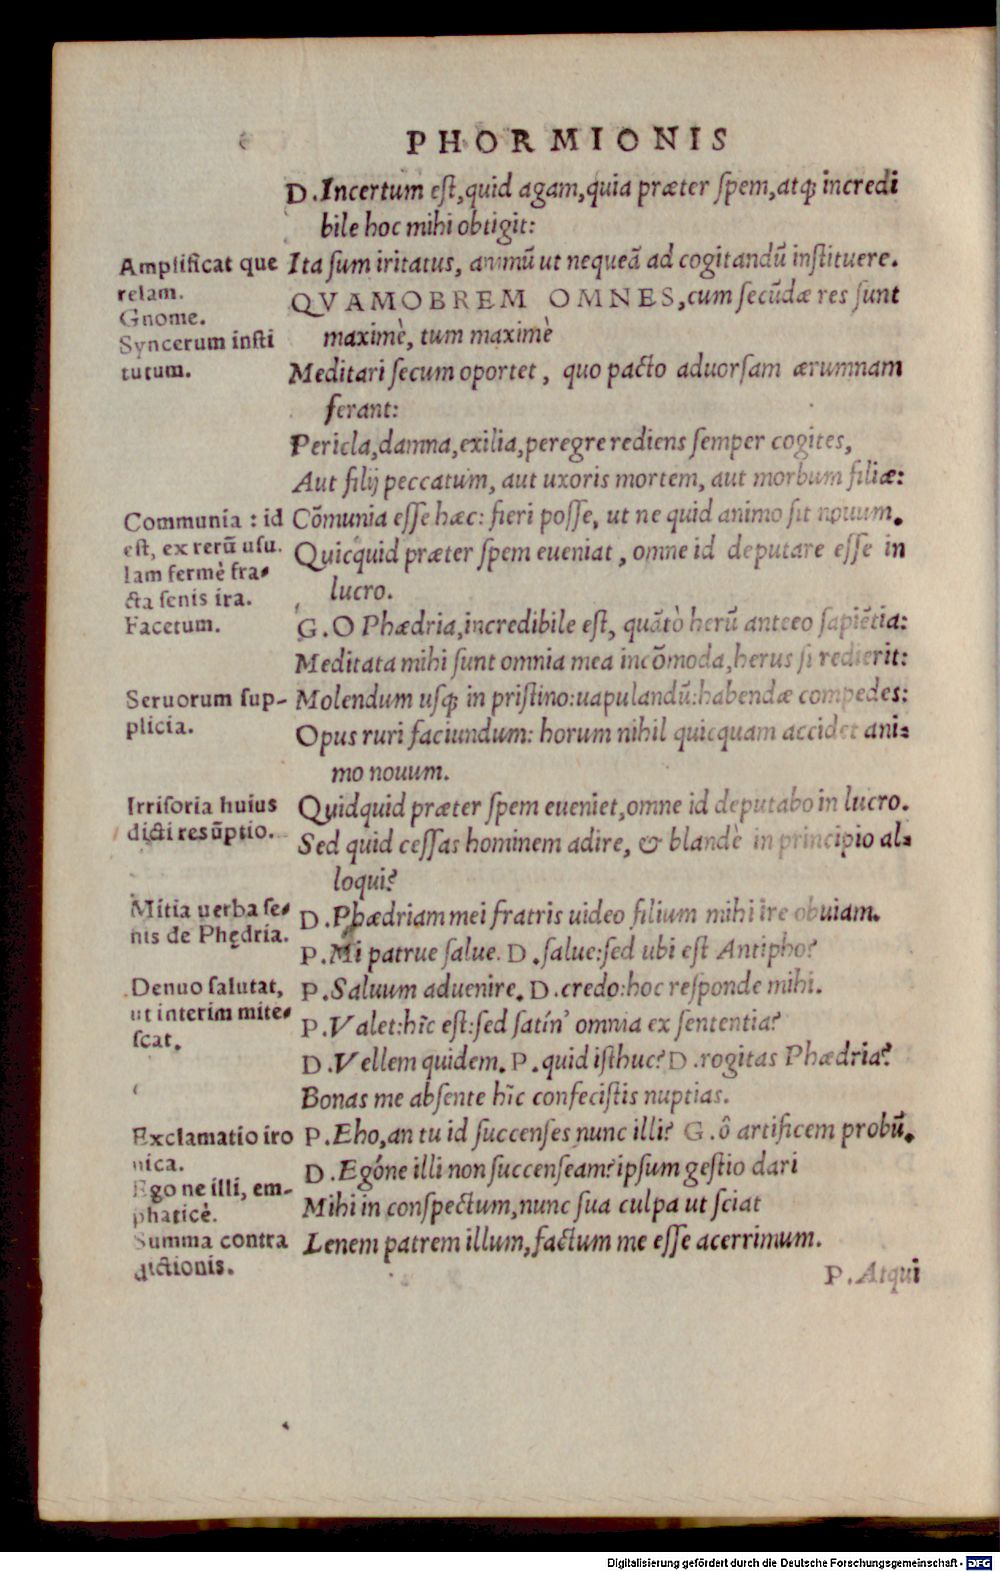 PHORMIONIS
D. Incertum est, quid agam, quia præter spem, atq; incredi
bile hoc mihi obtigit:
Amplificat que
relam.
Ita sum iritatus, animũ ut nequeã ad cogitandũ instituere.
Gnome.
QVAMOBREM OMNES, cum secũdæ res sunt
maximè, tum maximè
Syncerum insti
tutum.
Meditari secum oportet, quo pacto aduorsam ærumnam
ferant:
Pericla, damna, exilia, peregre rediens semper cogites,
Aut filij peccatum, aut uxoris mortem, aut morbum filiæ:
Communia : id
est, ex rerũ usu.
Iam fermè fra-
cta senis ira.
Cõmunia esse hæc: fieri posse, ut ne quid animo sit nouum.
Quicquid præter spem eueniat, omne id deputare esse in
lucro.
Facetum.
G. O Phædria, incredibile est, quãtò herũ anteeo sapiẽtia:
Meditata mihi sunt omnia mea incõmoda, herus si redierit:
Seruorum sup-
plicia.
Molendum usq; in pristino: uapulandũ: habendæ compedes:
Opus ruri faciundum: horum nihil quicquam accidet ani-
mo nouum.
Irrisoria huius
dicti resũptio.
Quidquid præter spem eueniet, omne id deputabo in lucro.
Sed quid cessas hominem adire, & blandè in principio al-
loqui?
Mitia uerba se-
nis de Phędria.
D. Phædriam mei fratris uideo filium mihi ire obuiam.
P. Mi patrue salue. D. salue: sed ubi est Antipho?
Denuo salutat,
ut interim mite-
scat.
P. Saluum aduenire. D. credo: hoc responde mihi.
P. Valet: hîc est: sed satín' omnia ex sententia?
D. Vellem quidem. P. quid isthuc? D. rogitas Phædria?
Bonas me absente hîc confecistis nuptias.
Exclamatio iro
nica.
P. Eho, an tu id succenses nunc illi? G. ô artificem probũ.
D. Egóne illi non succenseam? ipsum gestio dari
Ego ne illi, em-
phaticè.
Mihi in conspectum, nunc sua culpa ut sciat
Summa contra
dictionis.
Lenem patrem illum, factum me esse acerrimum.
P. Atqui
Digitalisierung gefördert durch die Deutsche Forschungsgemeinschaft - DFG